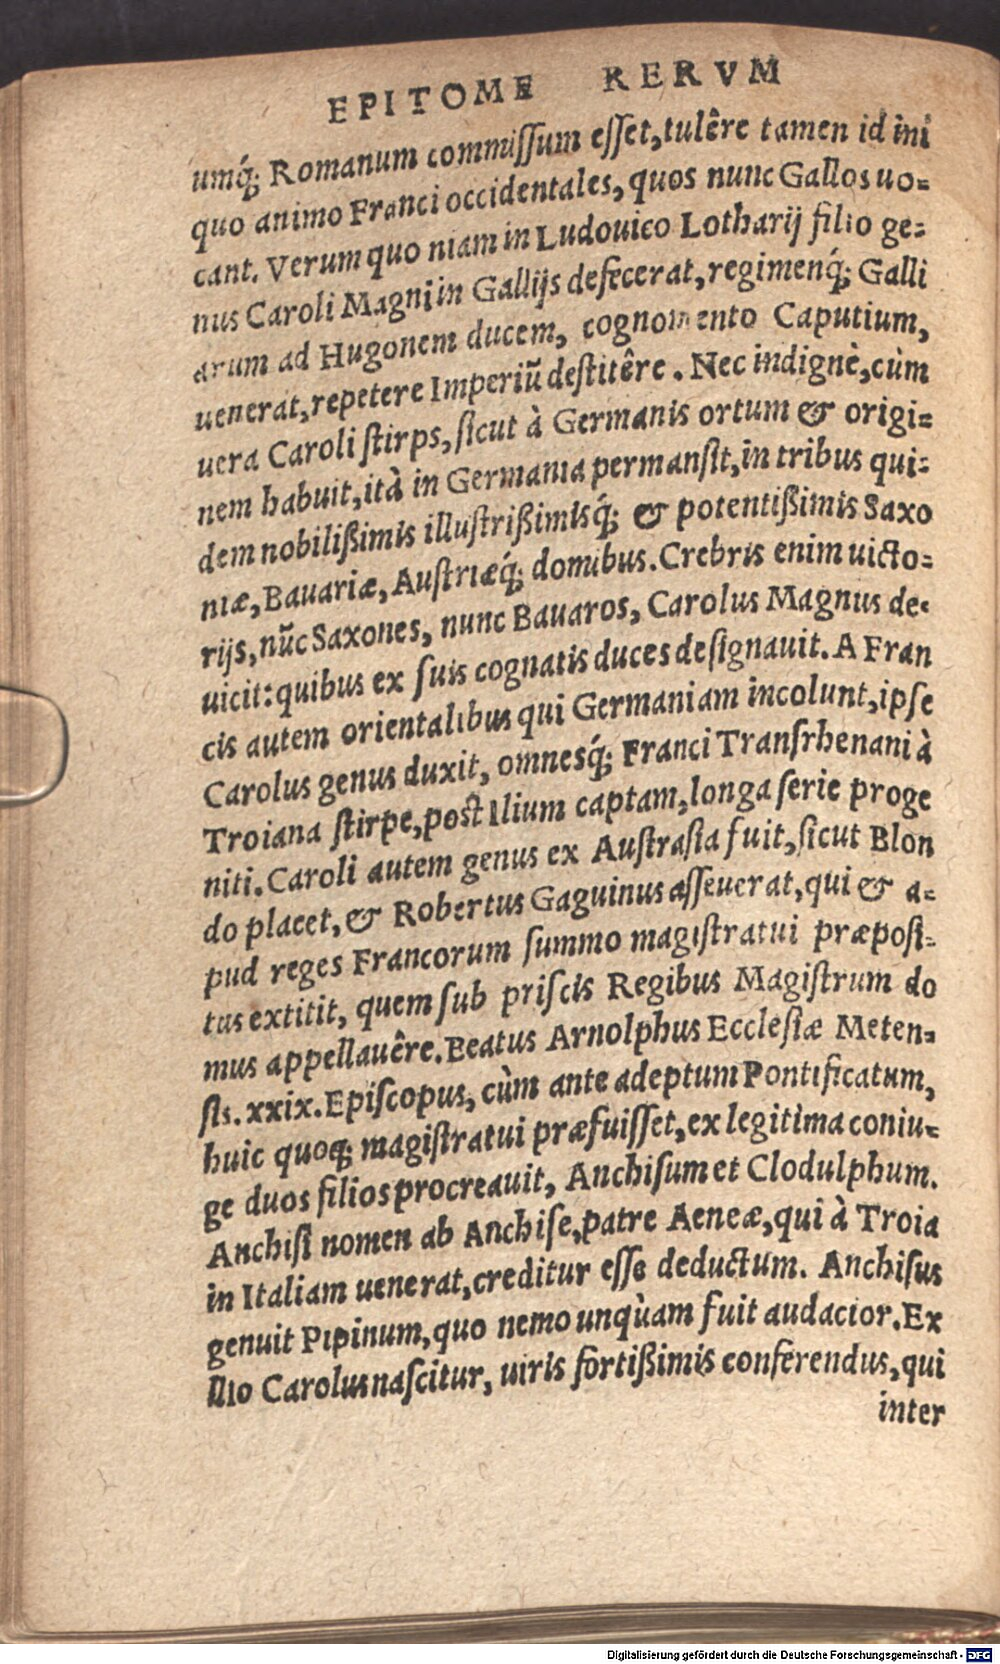 EPITOME RERVM
umq́; Romanum commiſſum eſſet, tulêre tamen id ini
quo animo Franci occidentales, quos nunc Gallos uo=
cant. Verum quo niam in Ludouico Lotharij filio ge=
nus Caroli Magni in Gallijs defecerat, regimenq́; Galli
arum ad Hugonem ducem, cognomento Caputium,
uenerat, repetere Imperiũ deſtitêre. Nec indignè, cùm
uera Caroli ſtirps, ſicut à Germanis ortum & origi=
nem habuit, ità in Germania permanſit, in tribus qui=
dem nobilißimis illuſtrißimisq́; & potentißimis Saxo
niæ, Bauariæ, Auſtriæq́; domibus. Crebris enim uicto=
rijs, nũc Saxones, nunc Bauaros, Carolus Magnus de=
uicit: quibus ex ſuis cognatis duces deſignauit. A Fran
cis autem orientalibus qui Germaniam incolunt, ipſe
Carolus genus duxit, omnesq́; Franci Tranſrhenani à
Troiana ſtirpe, poſt Ilium captam, longa ſerie proge
niti. Caroli autem genus ex Auſtraſia fuit, ſicut Blon
do placet, & Robertus Gaguinus aſſeuerat, qui & a=
pud reges Francorum ſummo magiſtratui præpoſi=
tus extitit, quem ſub priſcis Regibus Magiſtrum do
mus appellauêre. Beatus Arnolphus Eccleſiæ Meten=
ſis. xxix. Epiſcopus, cùm ante adeptum Pontificatum,
huic quoq; magiſtratui præfuiſſet, ex legitima coniu=
ge duos filios procreauit, Anchiſum et Clodulphum.
Anchiſi nomen ab Anchiſe, patre Aeneæ, qui à Troia
in Italiam uenerat, creditur eſſe deductum. Anchiſus
genuit Pipinum, quo nemo unquàm fuit audacior. Ex
illo Carolus naſcitur, uiris fortißimis conferendus, qui
inter
Digitalisierung gefördert durch die Deutsche Forschungsgemeinschaft - DFG